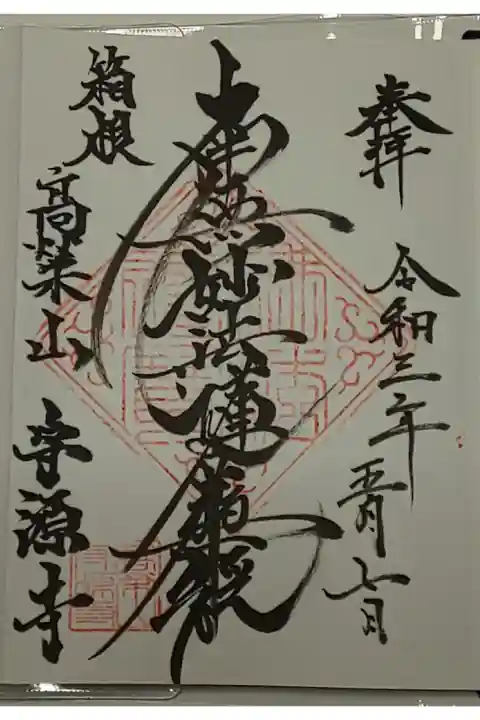 奉拝
令和三年五月七日
南無妙法蓮華経
箱根
高栄山
守源寺